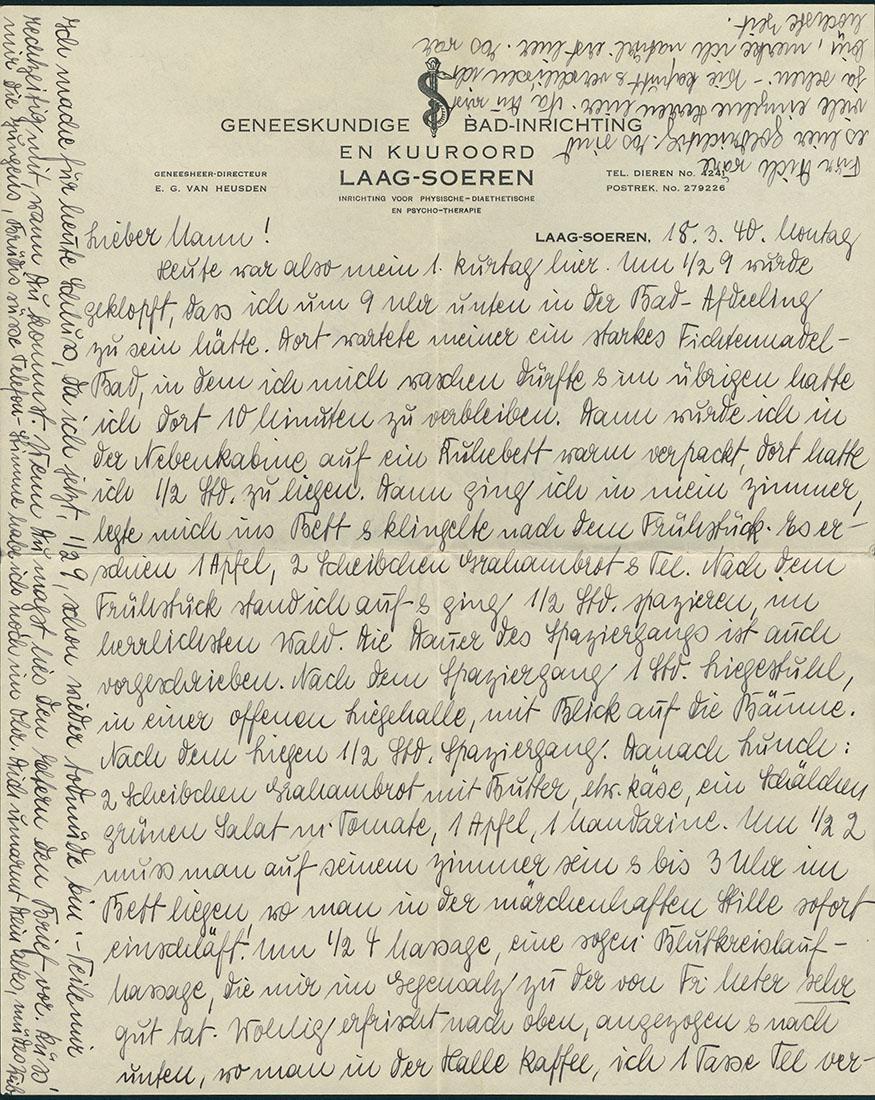 GENEESKUNDIGE BAD-INRICHTING
EN KUUROORD
LAAG-SOEREN
INRICHTING VOOR PHYSISCHE-DIAETHETISCHE
EN PSYCHO-THERAPIE
GENEESHEER-DIRECTEUR
E. G. VAN HEUSDEN
TEL. DIEREN No. 4241
POSTREK. No. 279226
LAAG-SOEREN, 18.3.40. Montag
Lieber Mann!
Heute war also mein 1. Kurtag hier. Um 1/2 9 wurde
geklopft, dass ich um 9 Uhr unten in der Bad-Afdeeling
zu sein hätte. Dort wartete meiner ein starkes Fichtennadel-
Bad, in dem ich mich waschen dürfte & im übrigen hatte
ich dort 10 Minuten zu verbleiben. Dann wurde ich in
der Nebenkabine auf ein Ruhebett warm verpackt, dort hatte
ich 1/2 Std. zu liegen. Dann ging ich in mein Zimmer,
legte mich ins Bett & klingelte nach dem Frühstück. Es er-
schien 1 Apfel, 2 Scheibchen Grahambrot & Tee. Nach dem
Frühstück stand ich auf & ging 1/2 Std. spazieren, im
herrlichsten Wald. Die Dauer des Spaziergangs ist auch
vorgeschrieben. Nach dem Spaziergang 1 Std. Liegestuhl,
in einer offenen Liegehalle, mit Blick auf die Bäume.
Nach dem Liegen 1/2 Std. Spaziergang. Danach Lunch:
2 Scheibchen Grahambrot mit Butter, etw. Käse, ein Schälchen
grünen Salat m. Tomate, 1 Apfel, 1 Mandarine. Um 1/2 2
muss man auf seinem Zimmer sein & bis 3 Uhr im
Bett liegen, wo man in der märchenhaften Stille sofort
einschläft. Um 1/2 4 Massage, eine sogen. Blutkreislauf-
Massage, die mir im Gegensatz zu der von Fr. Meter sehr
gut tat. Wohlig erfrischt nach oben, angezogen & nach
unten, wo man in der Halle Kaffee, ich 1 Tasse Tee ver-
Ich mache für heute Schluss, da ich jetzt, 1/2 9, schon wieder todmüde bin. - Teile mir
rechtzeitig mit, wann Du kommst. Wenn Du magst lies den Eltern den Brief vor. Küss'
mir die Jungens, süsse Telefon-Stimme habe ich noch im Ohr. Dich umarmt Dein altes, müdes
Für Dich wäre
es hier goldrichtig. Es sind
viele einzelne Herren hier. Na Du wirst
ja sehen. - Wie kaputt & verschlissen ich
bin, merke ich natürl. erst hier. Es war
höchste Zeit.